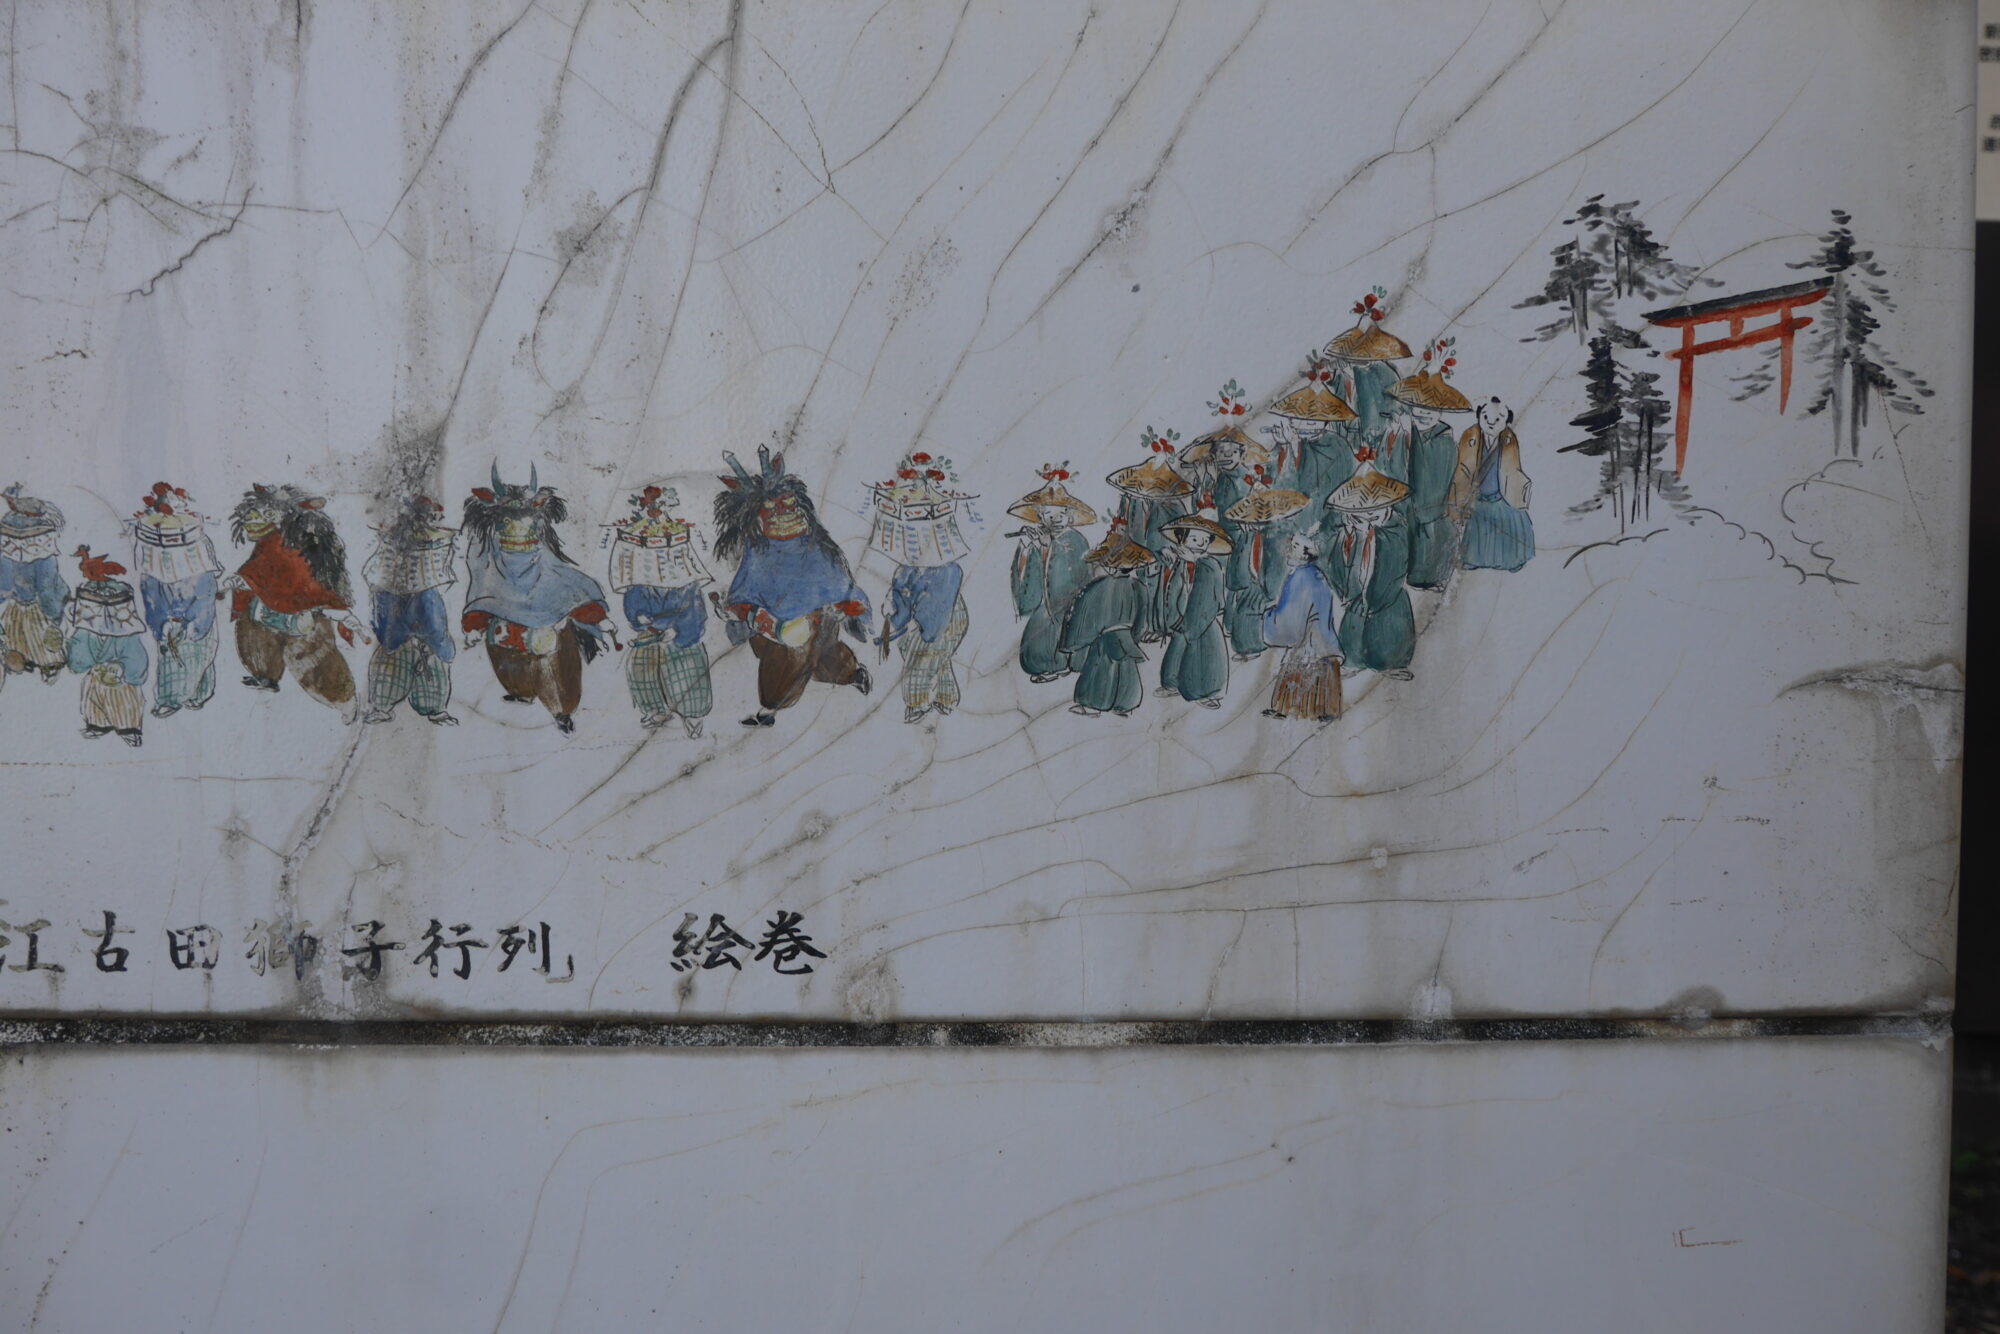 江古田獅子行列」 絵巻